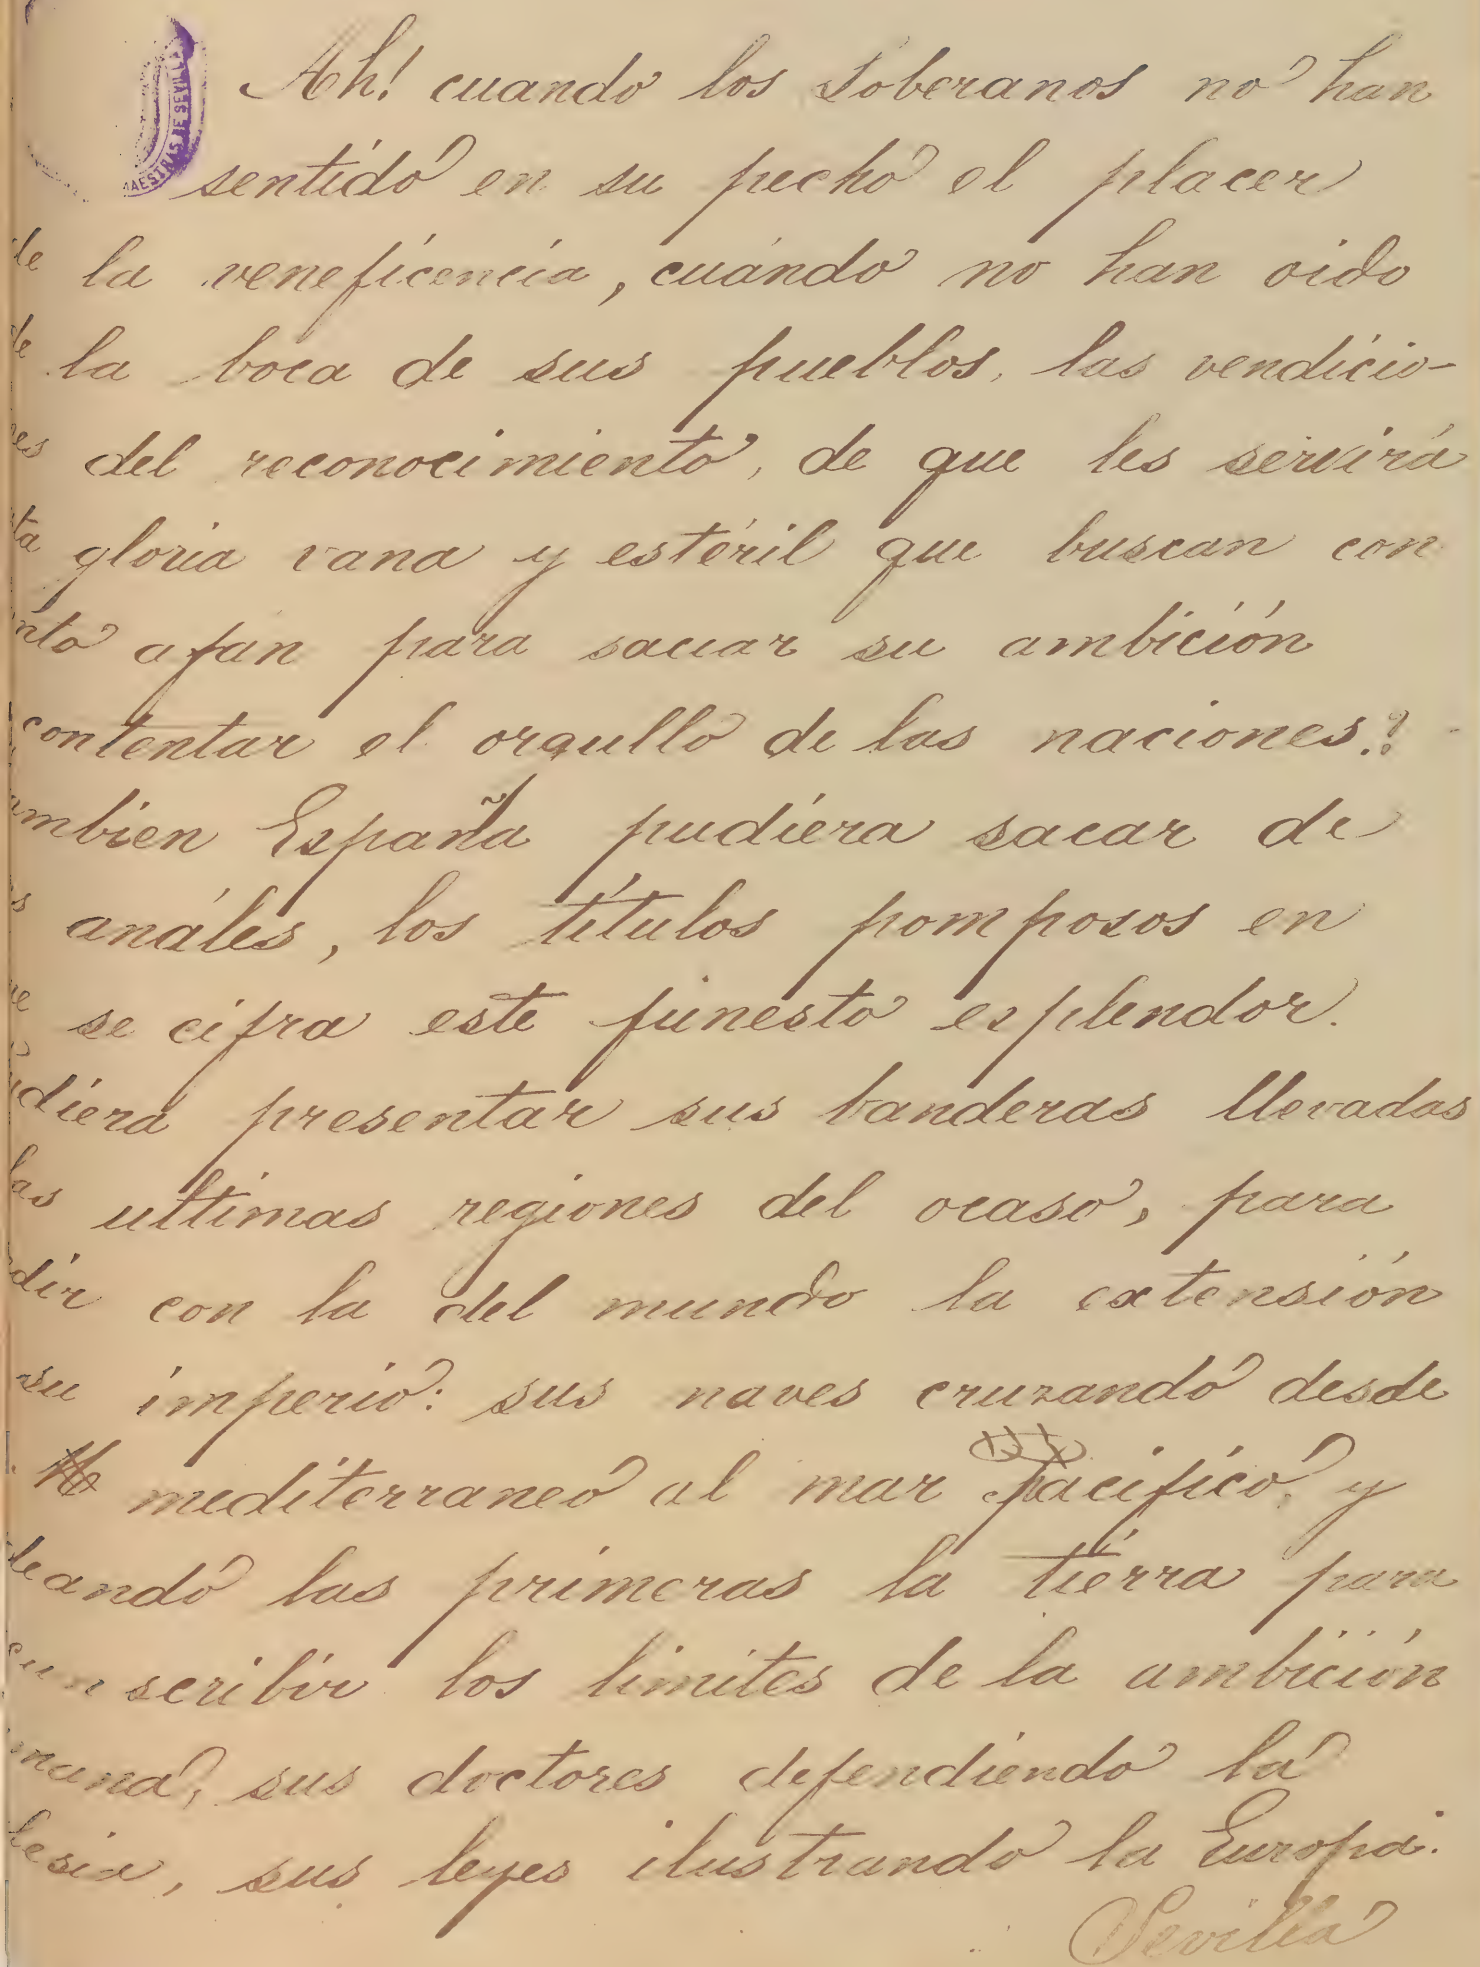 MAESTRAS DE SEVILLA
Ah! cuando los Soberanos no han
sentido en su pecho el placer
de la veneficencia, cuándo no han oido
de la boca de sus pueblos, las vendicio-
nes del reconocimiento, de que les servirá
ta gloria vana y estéril que buscan con
nto afan para saciar su ambición
contentar el orgullo de las naciones.?
ambien España pudiera sacar de
s análes, los títulos pomposos en
ue se cifra este funesto esplendor.
udiera presentar sus banderas llevadas
las ultimas regiones del ocaso, para
edir con la del mundo la extensión
su imperio: sus naves cruzando desde
l mediterraneo al mar Pacifico, y
deando las primeras la tierra para
cunscribir los limites de la ambición
mana, sus doctores defendiendo la
lesia, sus leyes ilustrando la Europa.
Sevilla